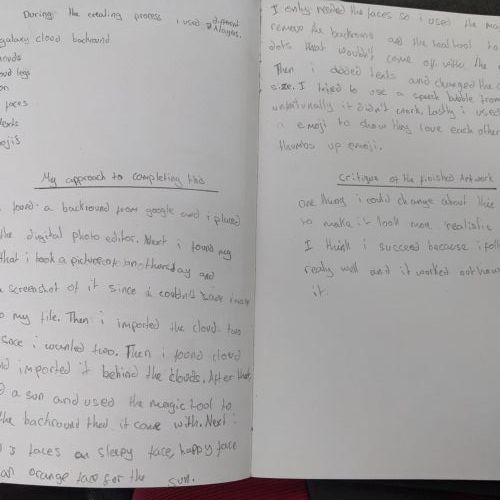 During: the creating process i used different
layers.
galaxy cloud backround
clouds
cloud legs
faces
texts
emojis
My approach to completing this
found a backround from google and i placed
the digital photo editor. Next i found my
that i took a picture of on thursday and
a screenshot of it since i couldn't save
to my file. Then i imported the cloud two
i wanted two. Then i found cloud
imported it behind the clouds. After that
a sun and used the magic tool to
the backround that it came with. Next i
3 faces an sleepy face, happy face
an orange face for the sun.
I only needed the faces so i used the
remove the backround and the tool to
dots that wouldn't come off with the
Then i added texts and changed the
size. I tried to use a speech bubble from
unfortunally it didn't work. Lastly i used
a emoji to show they love each other
thumbs up emoji.
Critique of the finished Artwork
One thing i could change about this
to make it look more realistic
I think i succeed because i
really well and it worked out
it.